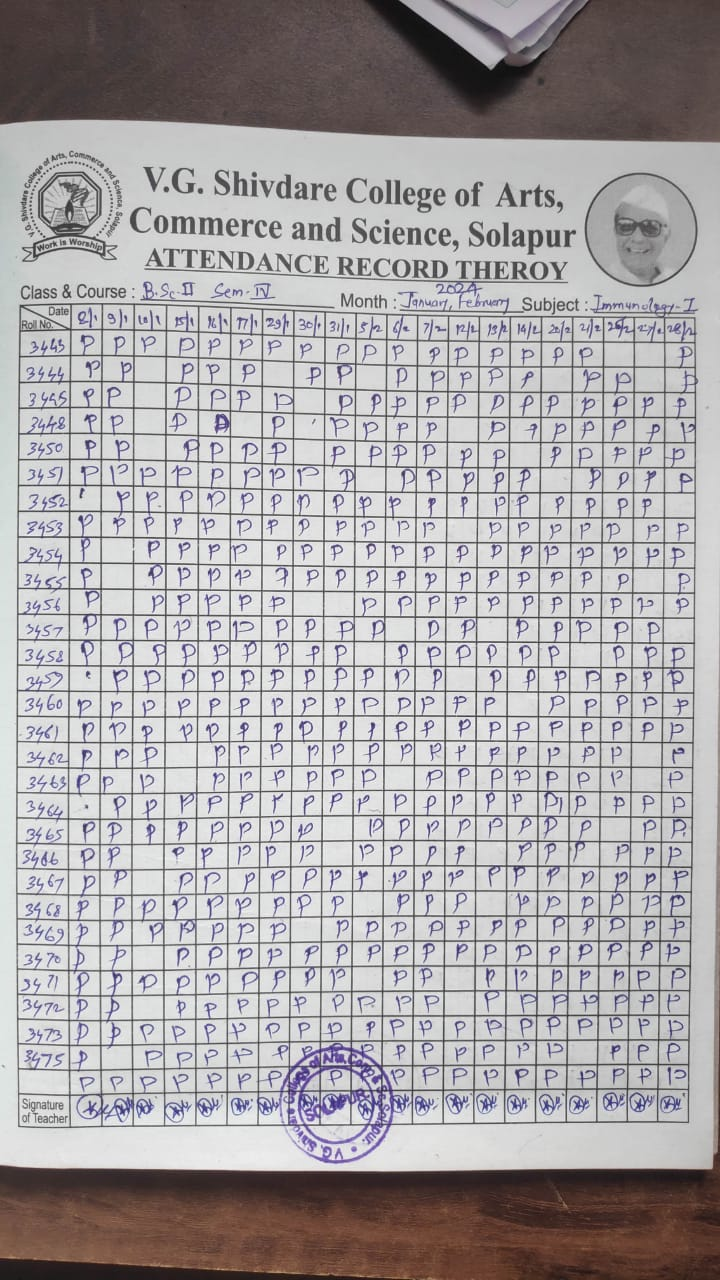 V.G. Shivdare College of Arts, Commerce and Science, Solapur
Work is Worship
V.G. Shivdare College of Arts,
Commerce and Science, Solapur
ATTENDANCE RECORD THEROY
Class & Course : B.Sc-II Sem-IV Month : January, February 2024 Subject : Immunology-I
Date
Roll No. 8/1 9/1 10/1 15/1 16/1 17/1 29/1 30/1 31/1 5/2 6/2 7/2 12/2 13/2 14/2 20/2 21/2 26/2 27/2 28/2
3443 P P P P P P P P P P P P P P P P P P
3444 P P P P P P P P P P P P P P P
3445 P P P P P P P P P P P P P P P P P P
3448 P P P P P P P P P P P P P P P P
3450 P P P P P P P P P P P P P P P P P
3451 P P P P P P P P P P P P P P P P P P P
3452 P P P P P P P P P P P P P P P P P
3453 P P P P P P P P P P P P P P P P P P P
3454 P P P P P P P P P P P P P P P P P P P
3455 P P P P P P P P P P P P P P P P P P
3456 P P P P P P P P P P P P P P P P P
3457 P P P P P P P P P P P P P P P P P
3458 P P P P P P P P P P P P P P P P P P
3459 P P P P P P P P P P P P P P P P P P
3460 P P P P P P P P P P P P P P P P P P P
3461 P P P P P P P P P P P P P P P P P P P P
3462 P P P P P P P P P P P P P P P P P P
3463 P P P P P P P P P P P P P P P P P
3464 P P P P P P P P P P P P P P P P P P P
3465 P P P P P P P P P P P P P P P P P P
3466 P P P P P P P P P P P P P P P P P
3467 P P P P P P P P P P P P P P P P P P P
3468 P P P P P P P P P P P P P P P P P P
3469 P P P P P P P P P P P P P P P P P P P
3470 P P P P P P P P P P P P P P P P P P P
3471 P P P P P P P P P P P P P P P P P
3472 P P P P P P P P P P P P P P P P P P
3473 P P P P P P P P P P P P P P P P P P P P
3475 P P P P P P P P P P P P P P P P P
P P P P P P P P P P P P P P P P P P P P
Signature
of Teacher
V.G. Shivdare College of Arts, Com & Sci Solapur.
SOLAPUR